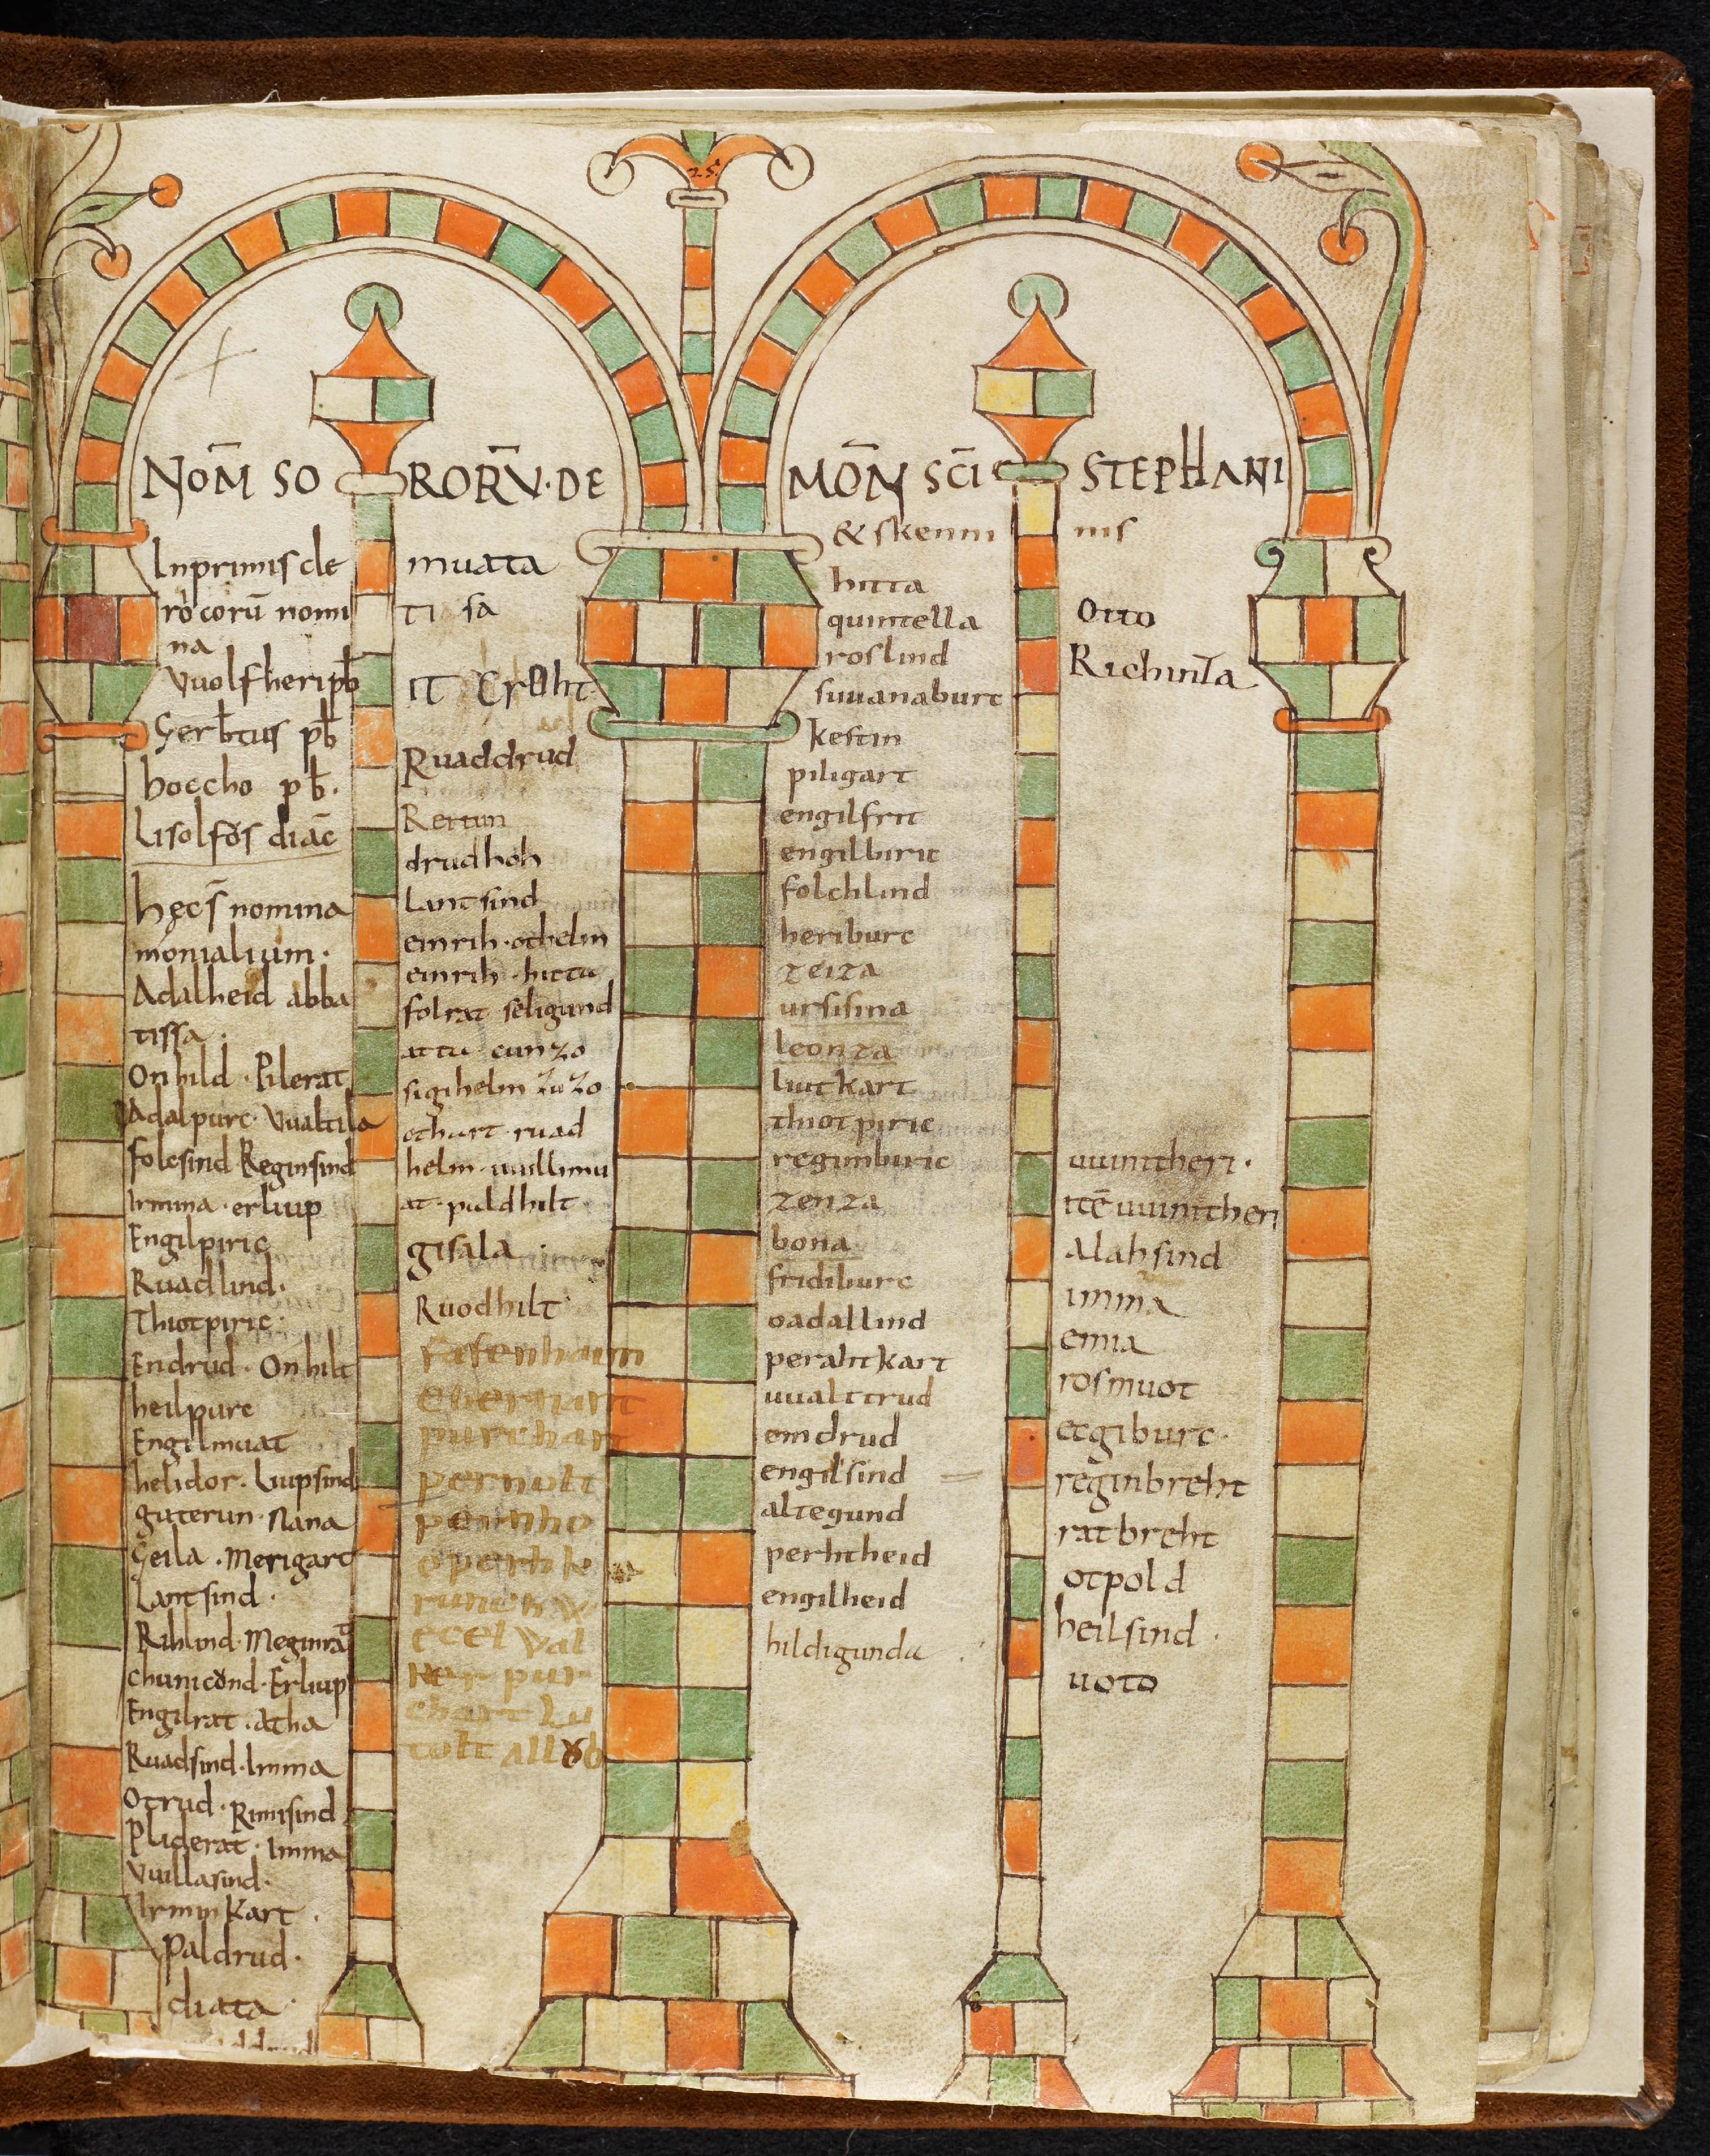 25.
NOM̄ SO RORV̄·DE MON̄ SCĪ STEPHANI
Inprimis cle
ricorū nomi
na
Vuolfheri pƀ
Gerƀtus pƀ
hoecho pƀ.
Lisolfus diac̄
hęc s̄ nomina
monialium·
Adalheid abba
tissa·
Onhild · Pilerat
Adalpurc· Vualtila
folcsind Reginsind
Irmina · erliup
Engilpiric
Ruadlind·
Thiotpiric·
Endrud · Onhilt
heilpurc
Engilmuat
helidor · Liupsind
guterun · Nana
Geila · Merigart
Lantsind ·
Rihlind · Meginra
chunicund · Erliup
Engilrat · Atha
Ruadsind · Imma
Otrud · Rimisind
Pliderat · Imma
Vuillasind·
Irminkart ·
Paldrud·
diata ·
muata
ti sa
it
Ruaddrud
drudhoh
Lantsind
einrih · othelm
einrih · hitta
folrat seligund
atta cunzo
sigihelm zuzo
othart · ruad
helm · uuillimu
at · puldhilt
gisala ·
Ruodhilt
rafenhaim
eberhart
purchart
pernolt
ecel Wal
ker pur
chart Lu
tolt
& skenni nis
hitta
quintella
roslind
suuanaburc
kestin
piligart
engilfrit
engilbiric
folchlind
heriburc
zeiza
ursisina
leonza
liutkart
thiotpiric
reginbiric
zenza
bona
fridiburc
oadallind
perahtkart
uualttrud
emdrud
engilsind
altegund
perhtheid
engilheid
hildigunda
Otto
Richinza
uuintheri·
itē uuintheri
Alahsind
imma
emma
rosmuot
etgiburc·
reginbreht
ratbreht
otpold
heilsind ·
uoto